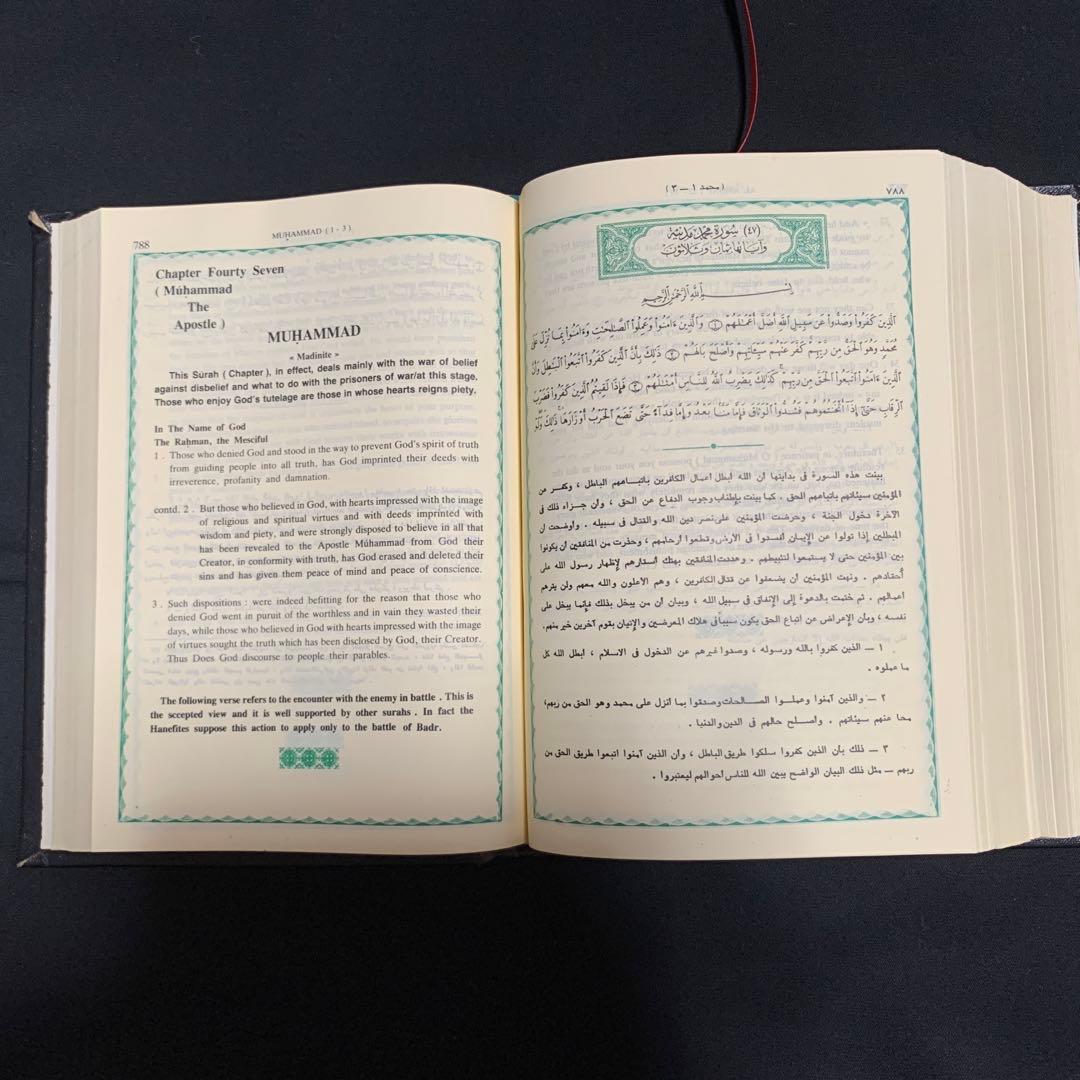 788
MUHAMMAD ( 1 - 3 )
Chapter Fourty Seven
( Múhammad
The
Apostle )
MUḤAMMAD
« Madinite »
This Súrah ( Chapter ), in effect, deals mainly with the war of belief
against disbelief and what to do with the prisoners of war/at this stage.
Those who enjoy God's tutelage are those in whose hearts reigns piety.
In The Name of God
The Raḥman, the Mesciful
1 . Those who denied God and stood in the way to prevent God's spirit of truth
from guiding people into all truth, has God imprinted their deeds with
irreverence, profanity and damnation.
contd. 2 . But those who believed in God, with hearts impressed with the image
of religious and spiritual virtues and with deeds imprinted with
wisdom and piety, and were strongly disposed to believe in all that
has been revealed to the Apostle Múhammad from God their
Creator, in conformity with truth, has God erased and deleted their
sins and has given them peace of mind and peace of conscience.
3 . Such dispositions : were indeed befitting for the reason that those who
denied God went in puruit of the worthless and in vain they wasted their
days, while those who believed in God with hearts impressed with the image
of virtues sought the truth which has been disclosed by God, their Creator.
Thus Does God discourse to people their parables.
The following verse refers to the encounter with the enemy in battle . This is
the sccepted view and it is well supported by other surahs . In fact the
Hanefites suppose this action to apply only to the battle of Badr.
( محمد ١ — ٣ )
٧٨٨
(٤٧) سُورَة مُحَمَّد مَدَنِيَّة
وَآيَاتُهَا ثَمَان وَثَلَاثُونَ
بِسْمِ ٱللَّهِ ٱلرَّحْمَٰنِ ٱلرَّحِيمِ
ٱلَّذِينَ كَفَرُوا۟ وَصَدُّوا۟ عَن سَبِيلِ ٱللَّهِ أَضَلَّ أَعْمَٰلَهُمْ ۝١ وَٱلَّذِينَ ءَامَنُوا۟ وَعَمِلُوا۟ ٱلصَّٰلِحَٰتِ وَءَامَنُوا۟ بِمَا نُزِّلَ عَلَىٰ
مُحَمَّدٍ وَهُوَ ٱلْحَقُّ مِن رَّبِّهِمْ كَفَّرَ عَنْهُمْ سَيِّـَٔاتِهِمْ وَأَصْلَحَ بَالَهُمْ ۝٢ ذَٰلِكَ بِأَنَّ ٱلَّذِينَ كَفَرُوا۟ ٱتَّبَعُوا۟ ٱلْبَٰطِلَ وَأَنَّ
ٱلَّذِينَ ءَامَنُوا۟ ٱتَّبَعُوا۟ ٱلْحَقَّ مِن رَّبِّهِمْ كَذَٰلِكَ يَضْرِبُ ٱللَّهُ لِلنَّاسِ أَمْثَٰلَهُمْ ۝٣ فَإِذَا لَقِيتُمُ ٱلَّذِينَ كَفَرُوا۟ فَضَرْبَ
ٱلرِّقَابِ حَتَّىٰٓ إِذَآ أَثْخَنتُمُوهُمْ فَشُدُّوا۟ ٱلْوَثَاقَ فَإِمَّا مَنًّۢا بَعْدُ وَإِمَّا فِدَآءً حَتَّىٰ تَضَعَ ٱلْحَرْبُ أَوْزَارَهَا ذَٰلِكَ وَلَوْ
بينت هذه السورة فى بدايتها أن الله أبطل أعمال الكافرين باتباعهم الباطل ، وكفر عن
المؤمنين سيئاتهم باتباعهم الحق . كما بينت بإطناب وجوب الدفاع عن الحق ، وأن جزاءه ذلك فى
الآخرة دخول الجنة ، وحرضت المؤمنين على نصر دين الله والقتال فى سبيله . وأوضحت أن
المبطلين إذا تولوا عن الإيمان أفسدوا فى الأرض وقطعوا أرحامهم ، وحذرت من المنافقين أن يكونوا
بين المؤمنين حتى لا يستمعوا لتثبيطهم . وهددت المنافقين بهتك أستارهم لإظهار رسول الله على
أحقادهم . ونهت المؤمنين أن يضعفوا عن قتال الكافرين ، وهم الأعلون والله معهم ولن يترهم
أعمالهم . ثم ختمت بالدعوة إلى الإنفاق فى سبيل الله ، وبيان أن من يبخل بذلك فإنما يبخل على
نفسه ، وبأن الإعراض عن اتباع الحق يكون سببا فى هلاك المعرضين والإتيان بقوم آخرين خير منهم.
١ — الذين كفروا بالله ورسوله ، وصدوا غيرهم عن الدخول فى الاسلام ، أبطل الله كل
ما عملوه .
٢ — والذين آمنوا وعملوا الصالحات وصدقوا بما أنزل على محمد وهو الحق من ربهم،
محا عنهم سيئاتهم . وأصلح حالهم فى الدين والدنيا .
٣ — ذلك بأن الذين كفروا سلكوا طريق الباطل ، وأن الذين آمنوا اتبعوا طريق الحق من
ربهم — مثل ذلك البيان الواضح يبين الله للناس أحوالهم ليعتبروا .